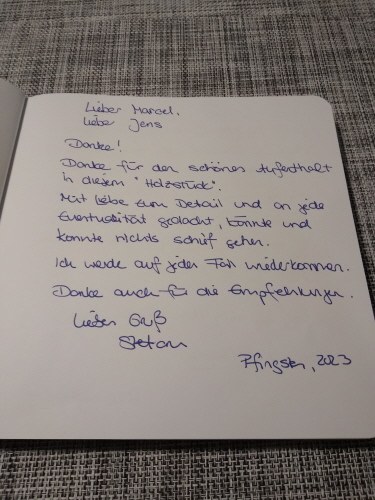 Lieber Marcel,
Liebe Jens
Danke!
Danke für den schönen Aufenthalt
in diesem "Holzstück".
Mit Liebe zum Detail und an jede
Eventualität gedacht, könnte und
konnte nichts schief gehen.
Ich werde auf jeden Fall wiederkommen.
Danke auch für die Empfehlungen.
Lieben Gruß
Stefan
Pfingsten, 2023